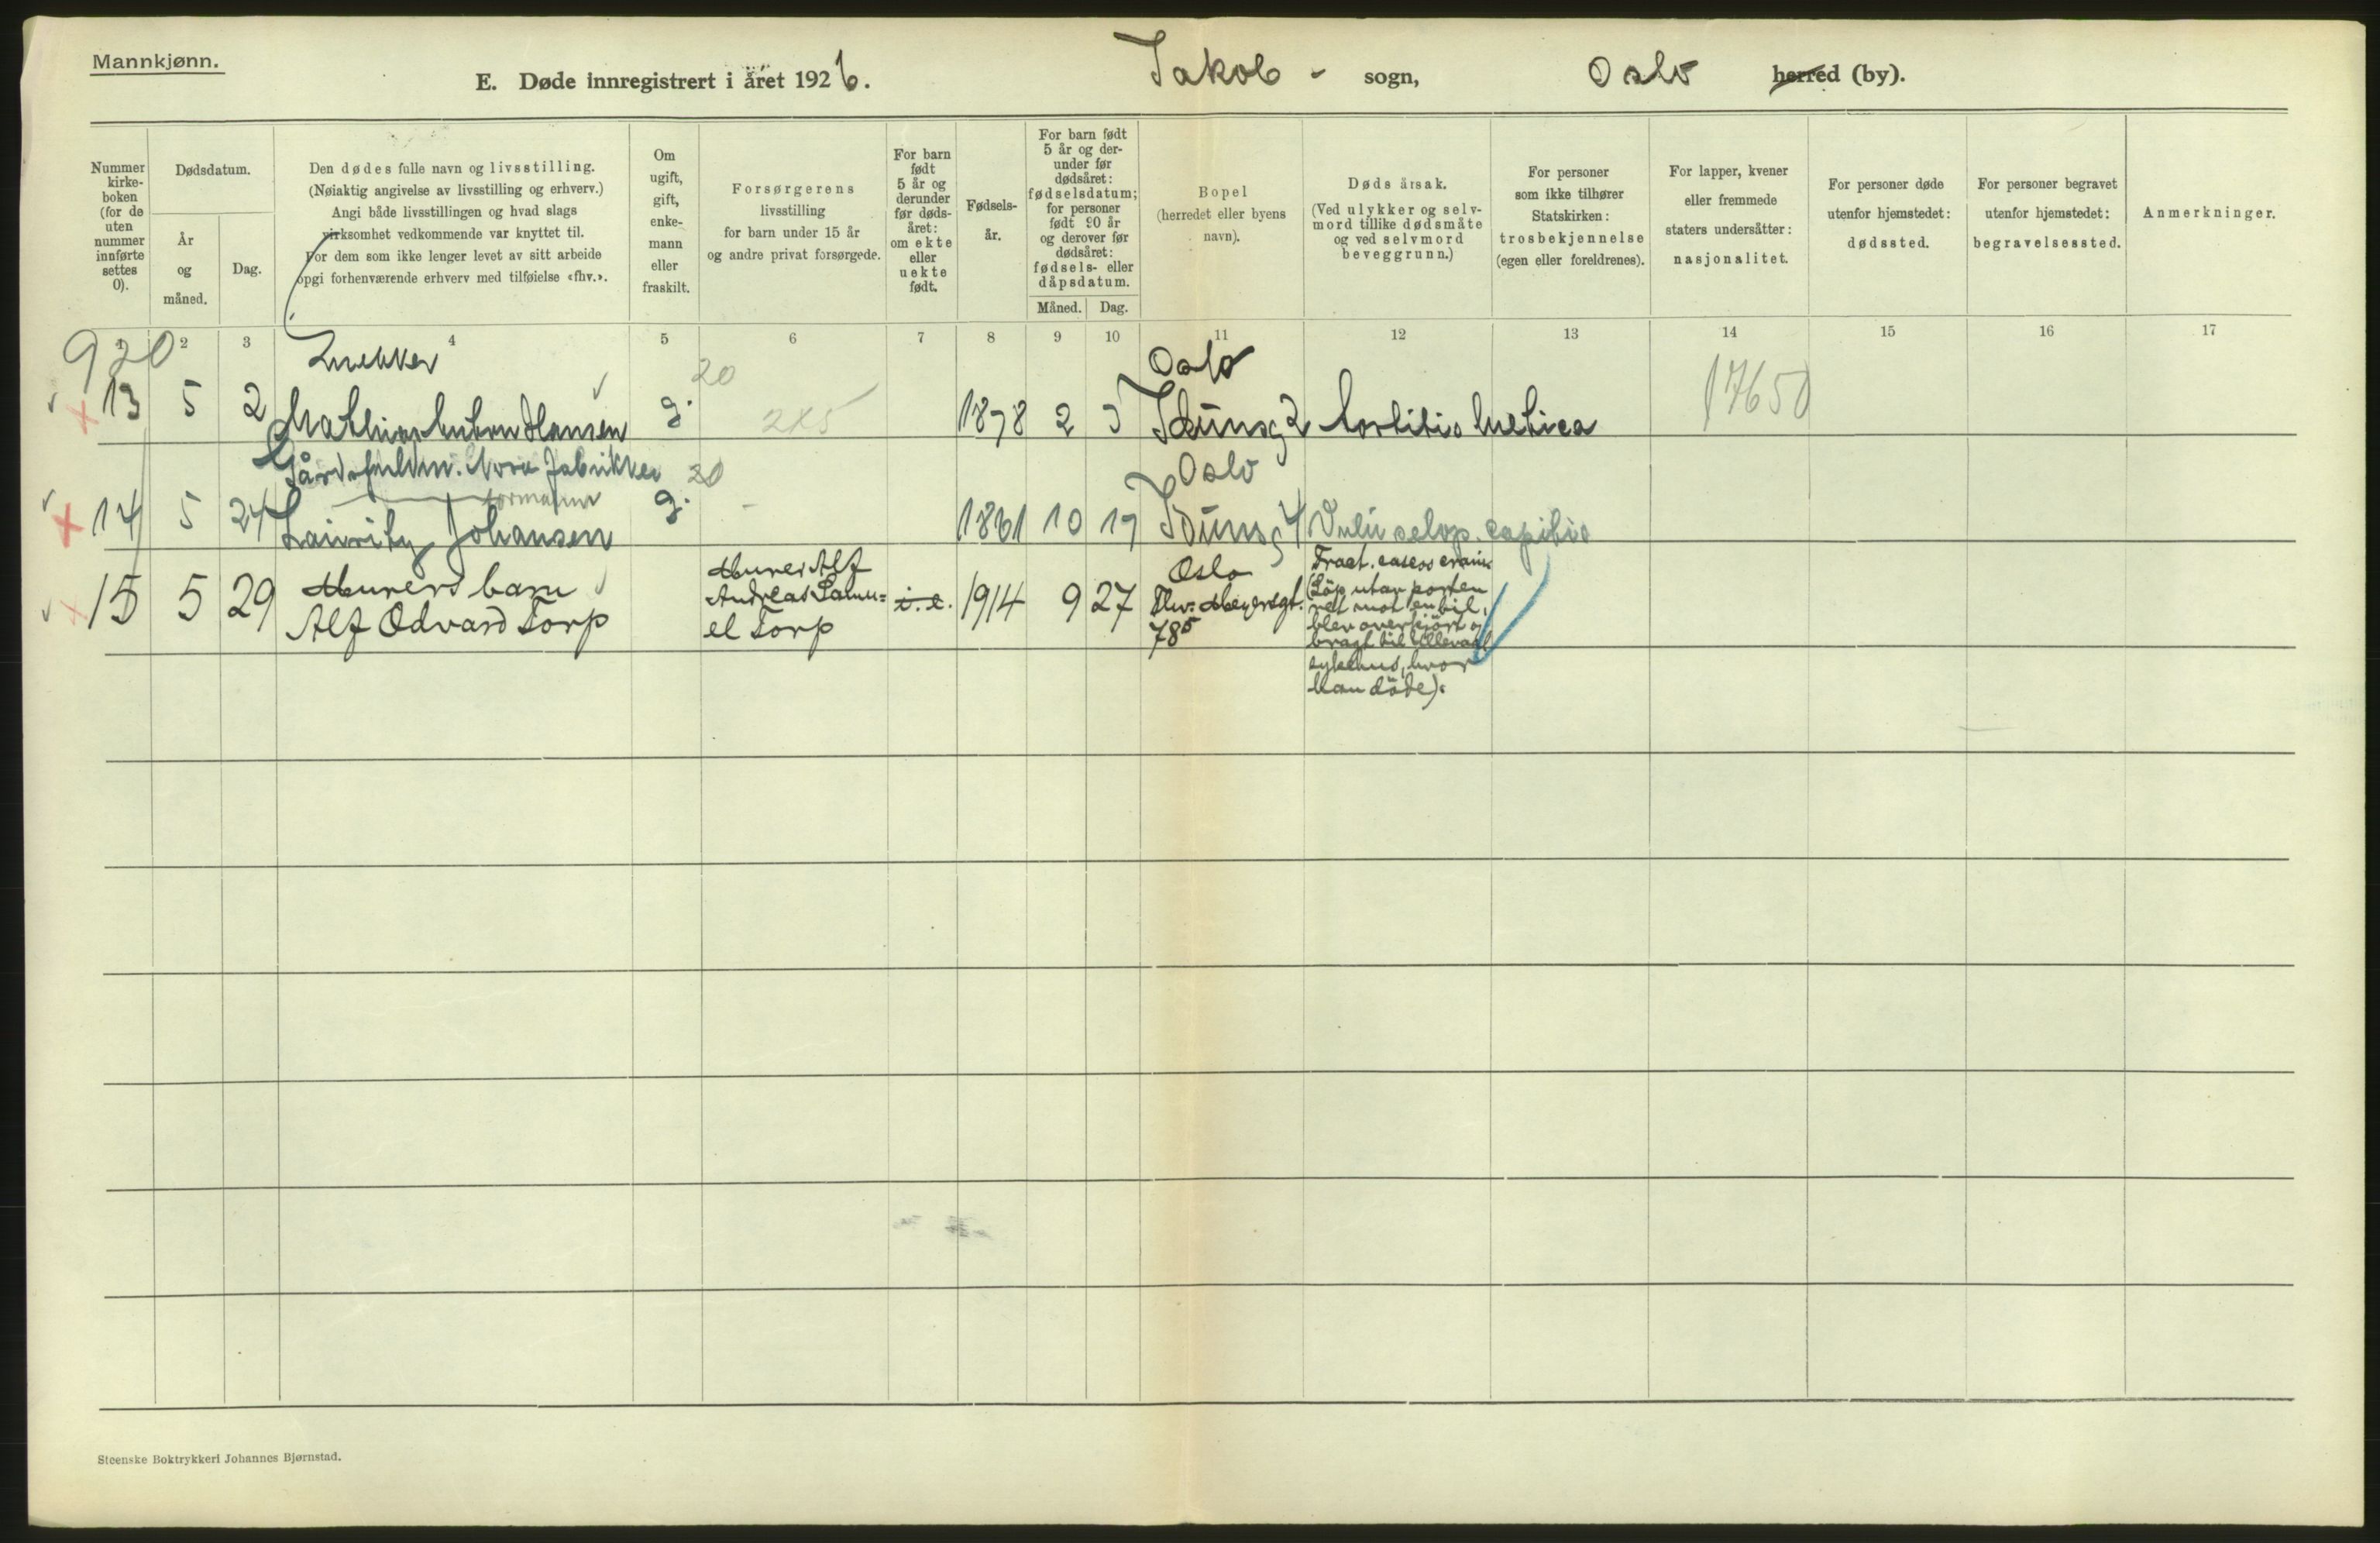 Mannkjønn.
E. Døde innregistrert i året 1926. Jakob - sogn, Oslo herred (by).
Nummer kirke-boken (for de uten nummer innførte settes 0).
Dødsdatum.
År og måned.
Dag.
Den dødes fulle navn og livsstilling.
(Nøiaktig angivelse av livsstilling og erhverv.)
Angi både livsstillingen og hvad slags
virksomhet vedkommende var knyttet til.
For dem som ikke lenger levet av sitt arbeide
opgi forhenværende erhverv med tilføielse «fhv.».
Om ugift, gift, enke-mann eller fraskilt.
Forsørgerens
livsstilling
for barn under 15 år
og andre privat forsørgede.
For barn født 5 år og derunder før døds-året: om ekte eller uekte født.
Fødsels-år.
For barn født 5 år og der-under før dødsåret: fødselsdatum; for personer født 90 år og derover før dødsåret: fødsels- eller dåpsdatum.
Måned. Dag.
Bopel
(herredet eller byens navn).
Døds årsak.
(Ved ulykker og selv-mord tillike dødsmåte og ved selvmord beveggrunn.)
For personer
som ikke tilhører
Statskirken:
trosbekjennelse
(egen eller foreldrenes).
For lapper, kvener
eller fremmede
staters undersåtter:
nasjonalitet.
For personer døde
utenfor hjemstedet:
dødssted.
For personer begravet
utenfor hjemstedet:
begravelsessted.
Anmerkninger.
1 2 3 4 5 6 7 8 9 10 11 12 13 14 15 16 17
920
Snekker 20 Oslo
13 5 2 Mathias Anton Hansen g. 2x5 1878 2 3 Idunsg 2 Aortitis luetica 17650
Gårdsfuldm. Nora Fabrikker 20 Oslo
formann
14 5 24 Lauritz Johansen g. - 1861 10 19 Idunsg 4 capitis
15 5 29 Murers barn
Alf Odvard Torp
Murer Alf
Andreas Samu=
el Torp
i. e. 1914 9 27
Oslo
Thv: Meyersgt.
78⁵
Fract. baseos cranii
(Løp utav porten
ret mot en bil,
blev overkjört og
bragt til Ullevaal
sykehus, hvor
han döde).
Steenske Boktrykkeri Johannes Bjørnstad.